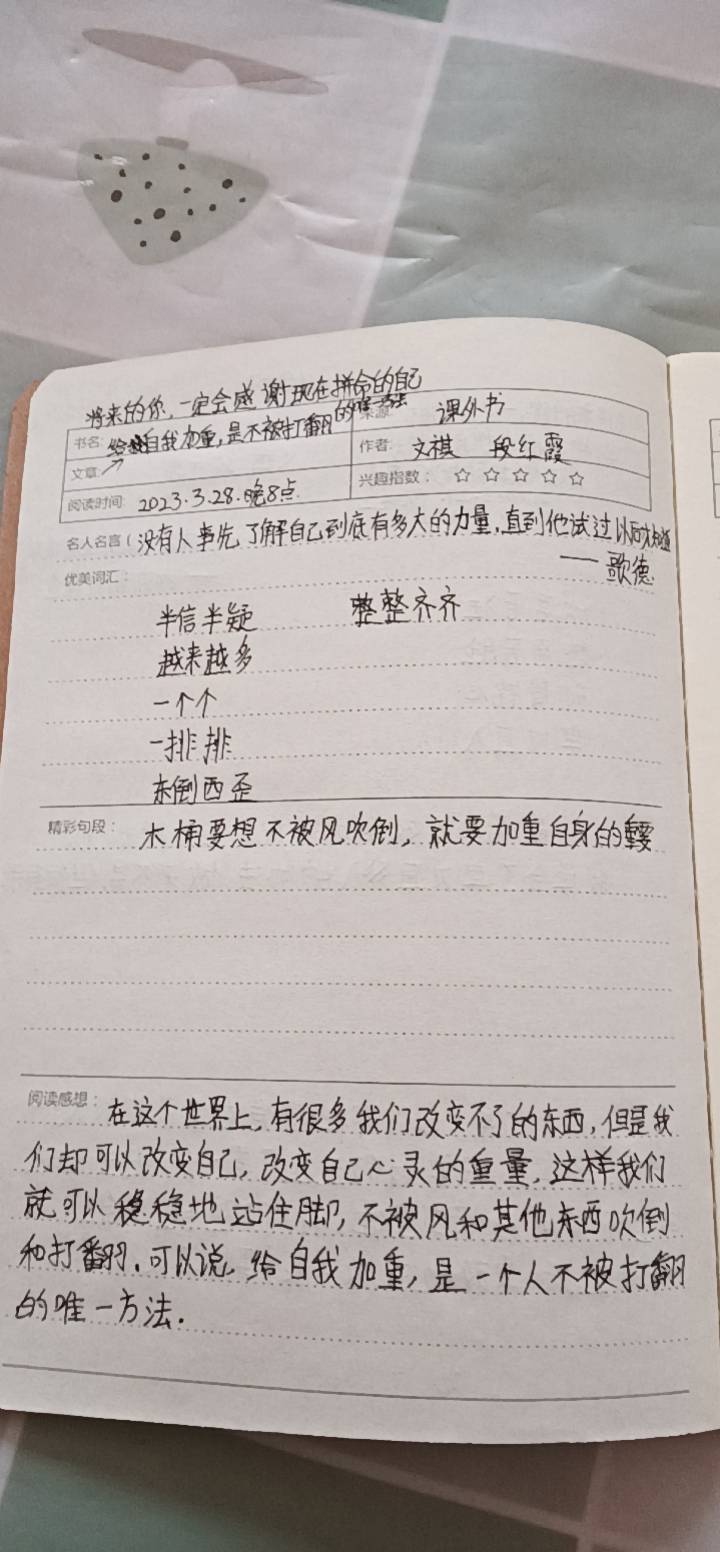 将来的你，一定会感谢现在拼命的自己
书名： 给自我加重，是不被打翻的唯一方法 来源： 课外书
文章： 作者： 文祺 段红霞
阅读时间： 2023.3.28.晚8点 兴趣指数： ☆ ☆ ☆ ☆ ☆
名人名言（ 没有人事先了解自己到底有多大的力量，直到他试过以后才知道
—— 歌德.
优美词汇：
半信半疑 整整齐齐
越来越多
一个个
一排排
东倒西歪
精彩句段： 木桶要想不被风吹倒，就要加重自身的
阅读感想： 在这个世界上，有很多我们改变不了的东西，但是我
们却可以改变自己，改变自己心灵的重量，这样我们
就可以稳稳地站住脚，不被风和其他东西吹倒
和打翻．可以说，给自我加重，是一个人不被打翻
的唯一方法．